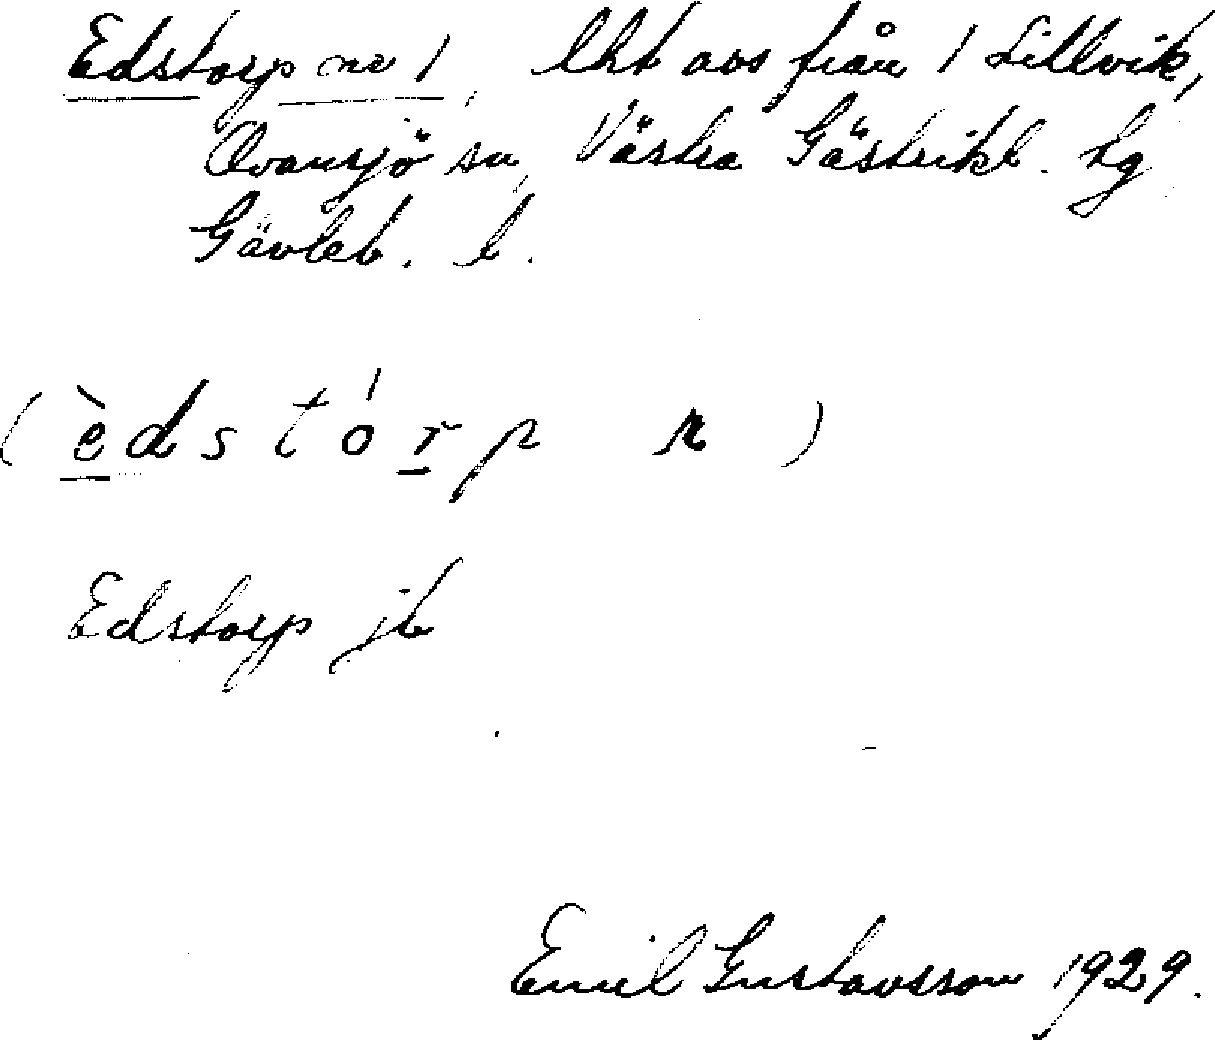 Edstorp nr 1, lht avs från 1 Lillvik,
Ovansjö sn, Västra Gästrikl. hg
Gävleb. l.
( èdstórp n )
Edstorp jb
Emil Gustavsson 1929.